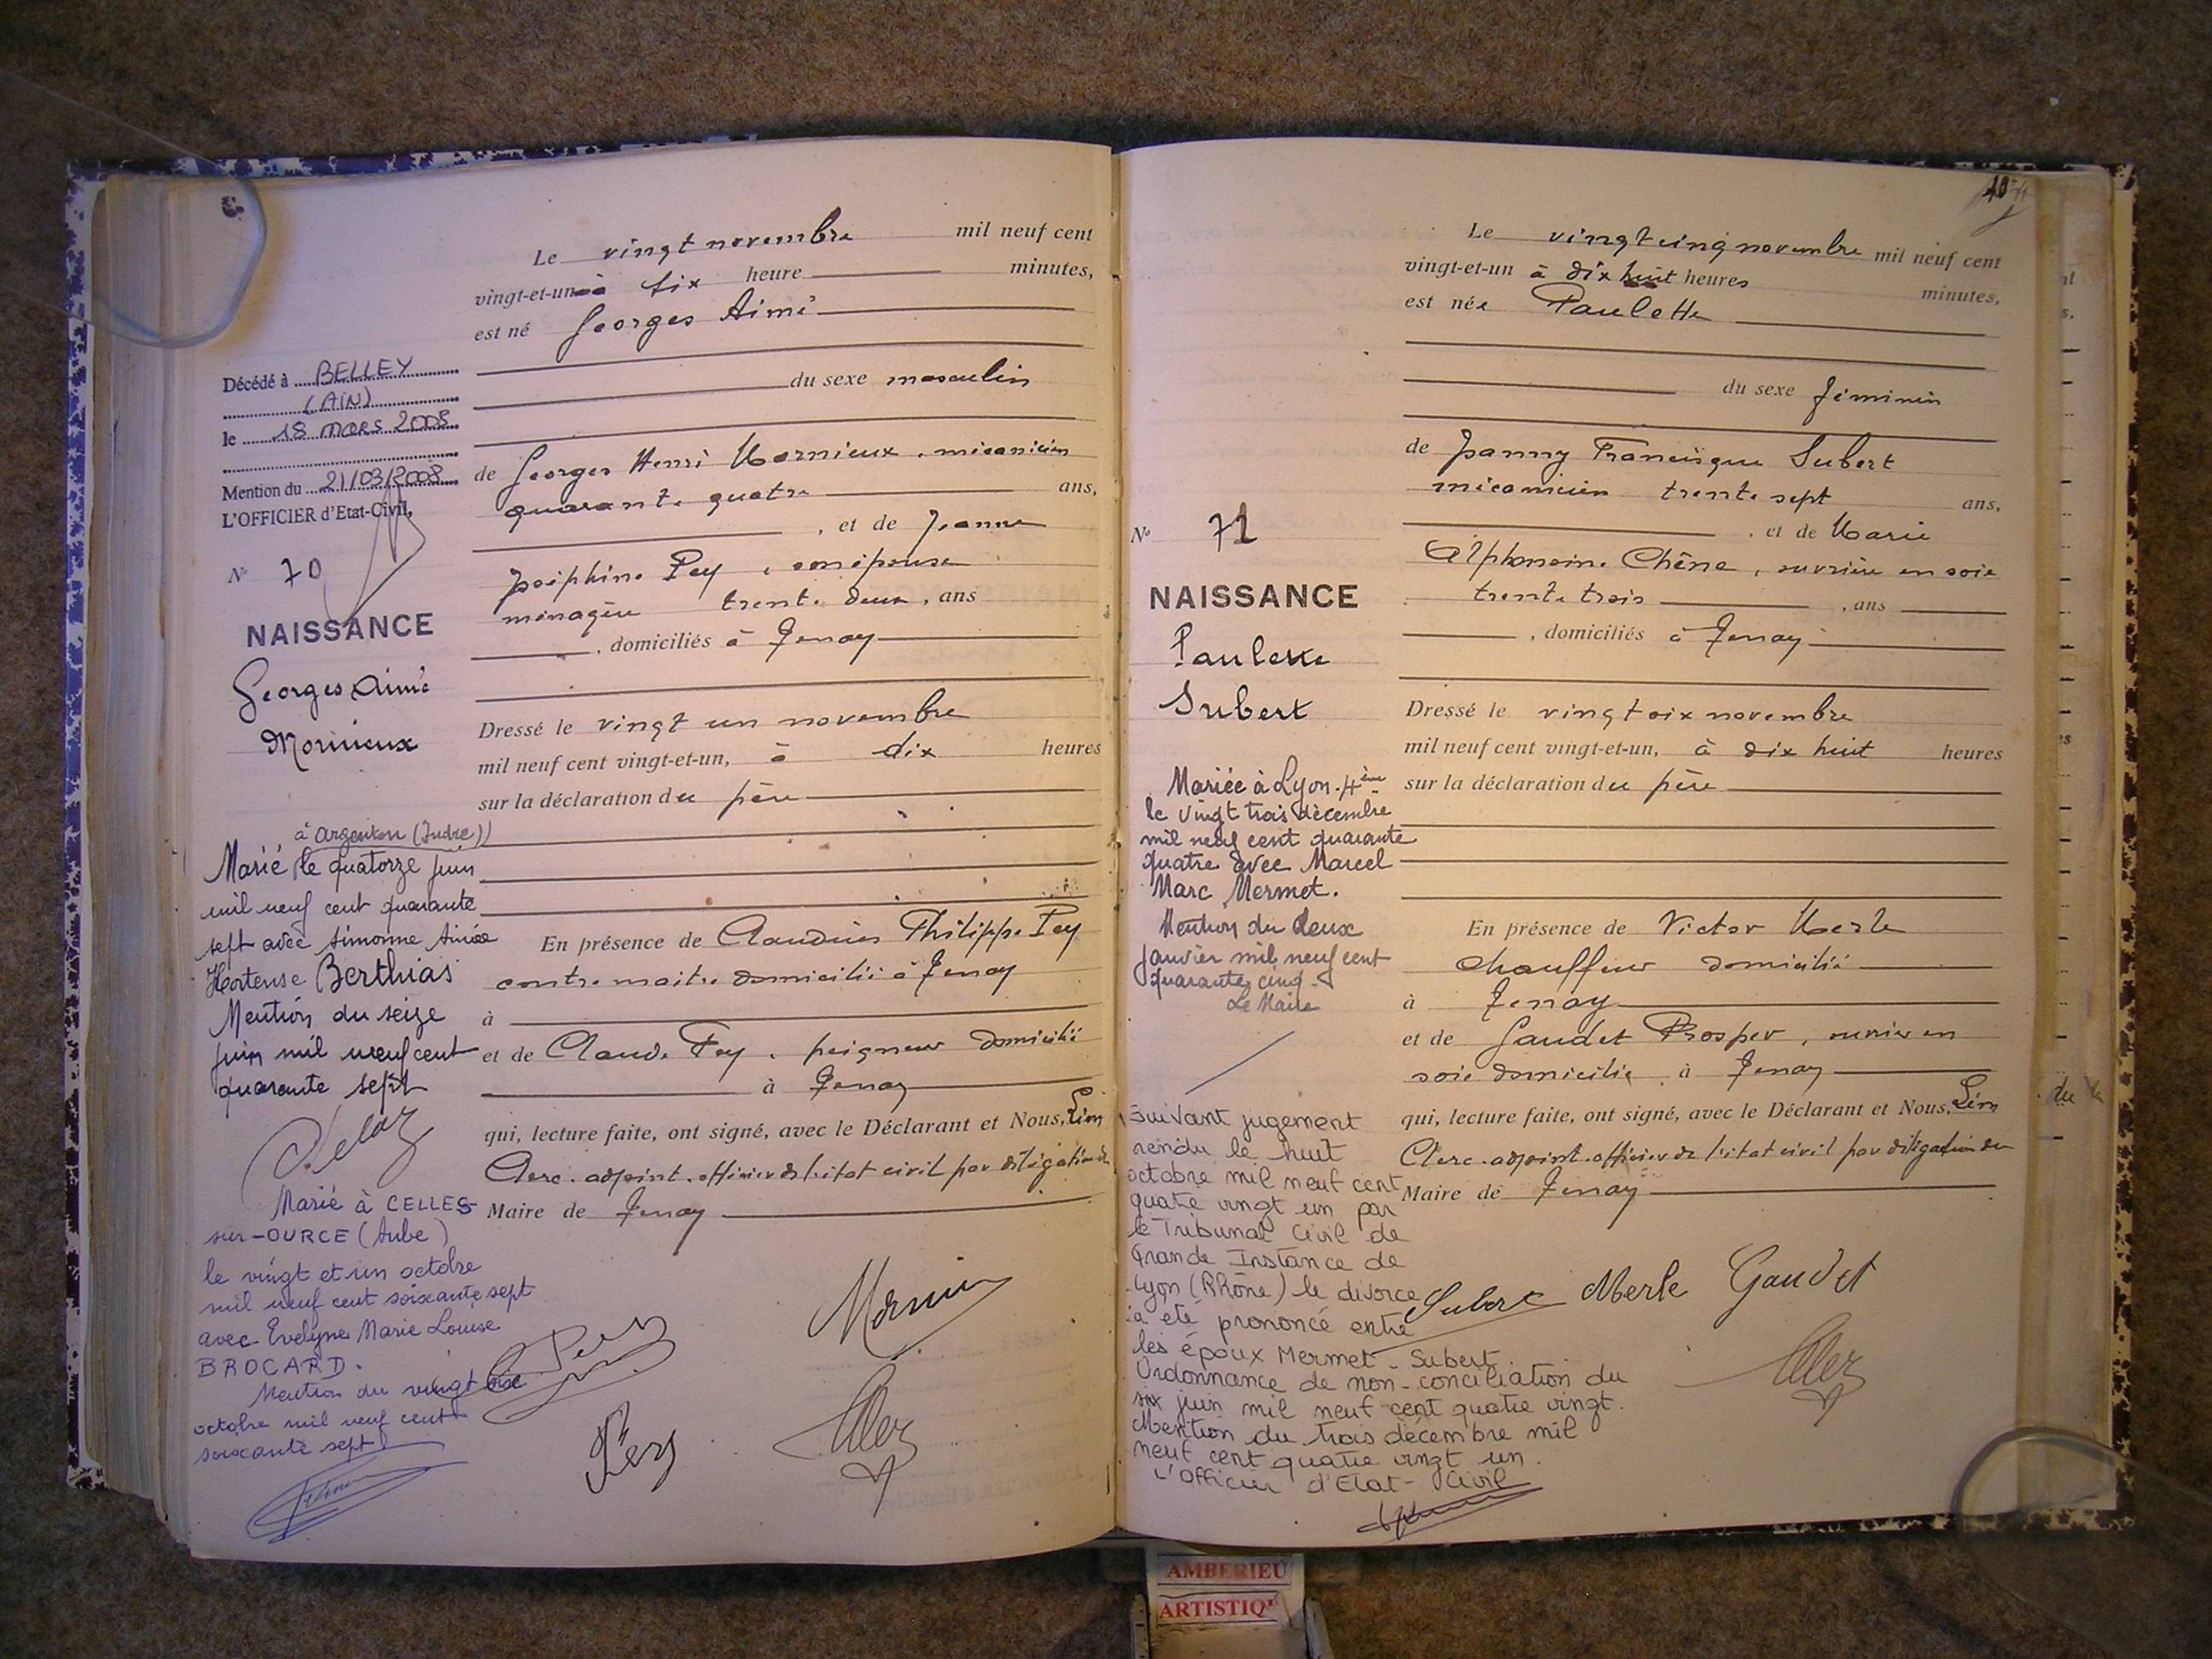 Le vingt novembre mil neuf cent
vingt-et-un à six heure minutes,
est né Georges Aimé
du sexe masculin
de Georges Henri Mornieux, mécanicien
quarante quatre ans,
, et de Jeanne
Joséphine Pey, son épouse
ménagère trente deux, ans
, domiciliés à Tenay
Dressé le vingt un novembre
mil neuf cent vingt-et-un, à dix heures
sur la déclaration du père
En présence de Claudius Philippe Pey
contremaitre domicilié à Tenay
à
et de Claude Pey, peigneur domicilié
à Tenay
qui, lecture faite, ont signé, avec le Déclarant et Nous, Léon
Clerc. adjoint. officier de l'état civil par délégation du
Maire de Tenay
Décédé à BELLEY
(AIN)
le 18 mars 2008
Mention du 21/03/2008
L'OFFICIER d'Etat-Civil,
N° 70
NAISSANCE
Georges Aimé
Mornieux
à Argenton (Indre)
Marié le quatorze juin
mil neuf cent quarante
sept avec Simonne Aimée
Hortense Berthias
Mention du seize
juin mil neuf cent
quarante sept
Marié à CELLES-
sur-OURCE (Aube)
le vingt et un octobre
mil neuf cent soixante sept
avec Evelyne Marie Louise
BROCARD.
Mention du vingt
octobre mil neuf cent
soixante sept
Le vingt cinq novembre mil neuf cent
vingt-et-un à dix huit heures minutes,
est née Paulette
du sexe féminin
de Joanny Francisque Subert
mécanicien trente sept ans,
, et de Marie
Alphonsine Chêne, ouvrière en soie
trente trois , ans
, domiciliés à Tenay
Dressé le vingt six novembre
mil neuf cent vingt-et-un, à dix huit heures
sur la déclaration du père
En présence de Victor Merle
chauffeur domicilié
à Tenay
et de Gaudet Prosper, ouvrier en
soie domicilié à Tenay
qui, lecture faite, ont signé, avec le Déclarant et Nous, Léon
Clerc. adjoint. officier de l'état civil par délégation du
Maire de Tenay
Subert Merle Gaudet
N° 71
NAISSANCE
Paulette
Subert
Mariée à Lyon. 4ème
le vingt trois décembre
mil neuf cent quarante
quatre avec Marcel
Marc Mermet.
Mention du deux
janvier mil neuf cent
quarante cinq.
Le Maire
Suivant jugement
rendu le huit
octobre mil neuf cent
quatre vingt un par
le Tribunal Civil de
Grande Instance de
Lyon (Rhône) le divorce
a été prononcé entre
les époux Mermet - Subert.
Ordonnance de non-conciliation du
six juin mil neuf cent quatre vingt.
Mention du trois décembre mil
neuf cent quatre vingt un.
L'Officier d'Etat-Civil
du
AMBERIEU
ARTISTIQ